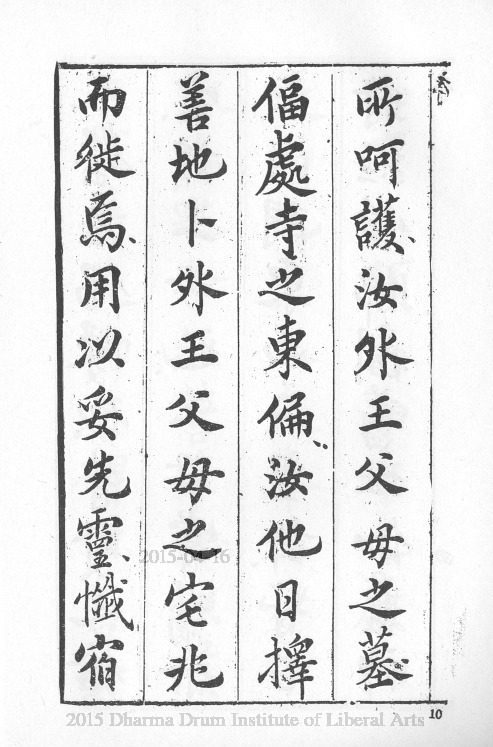 所呵護汝外王父毋之墓
偪處寺之東偏汝他日擇
善地卜外王父毋之宅兆
而徙焉用以妥先靈懺宿
10
2015-04-16
2015 Dharma Drum Institute of Liberal Arts